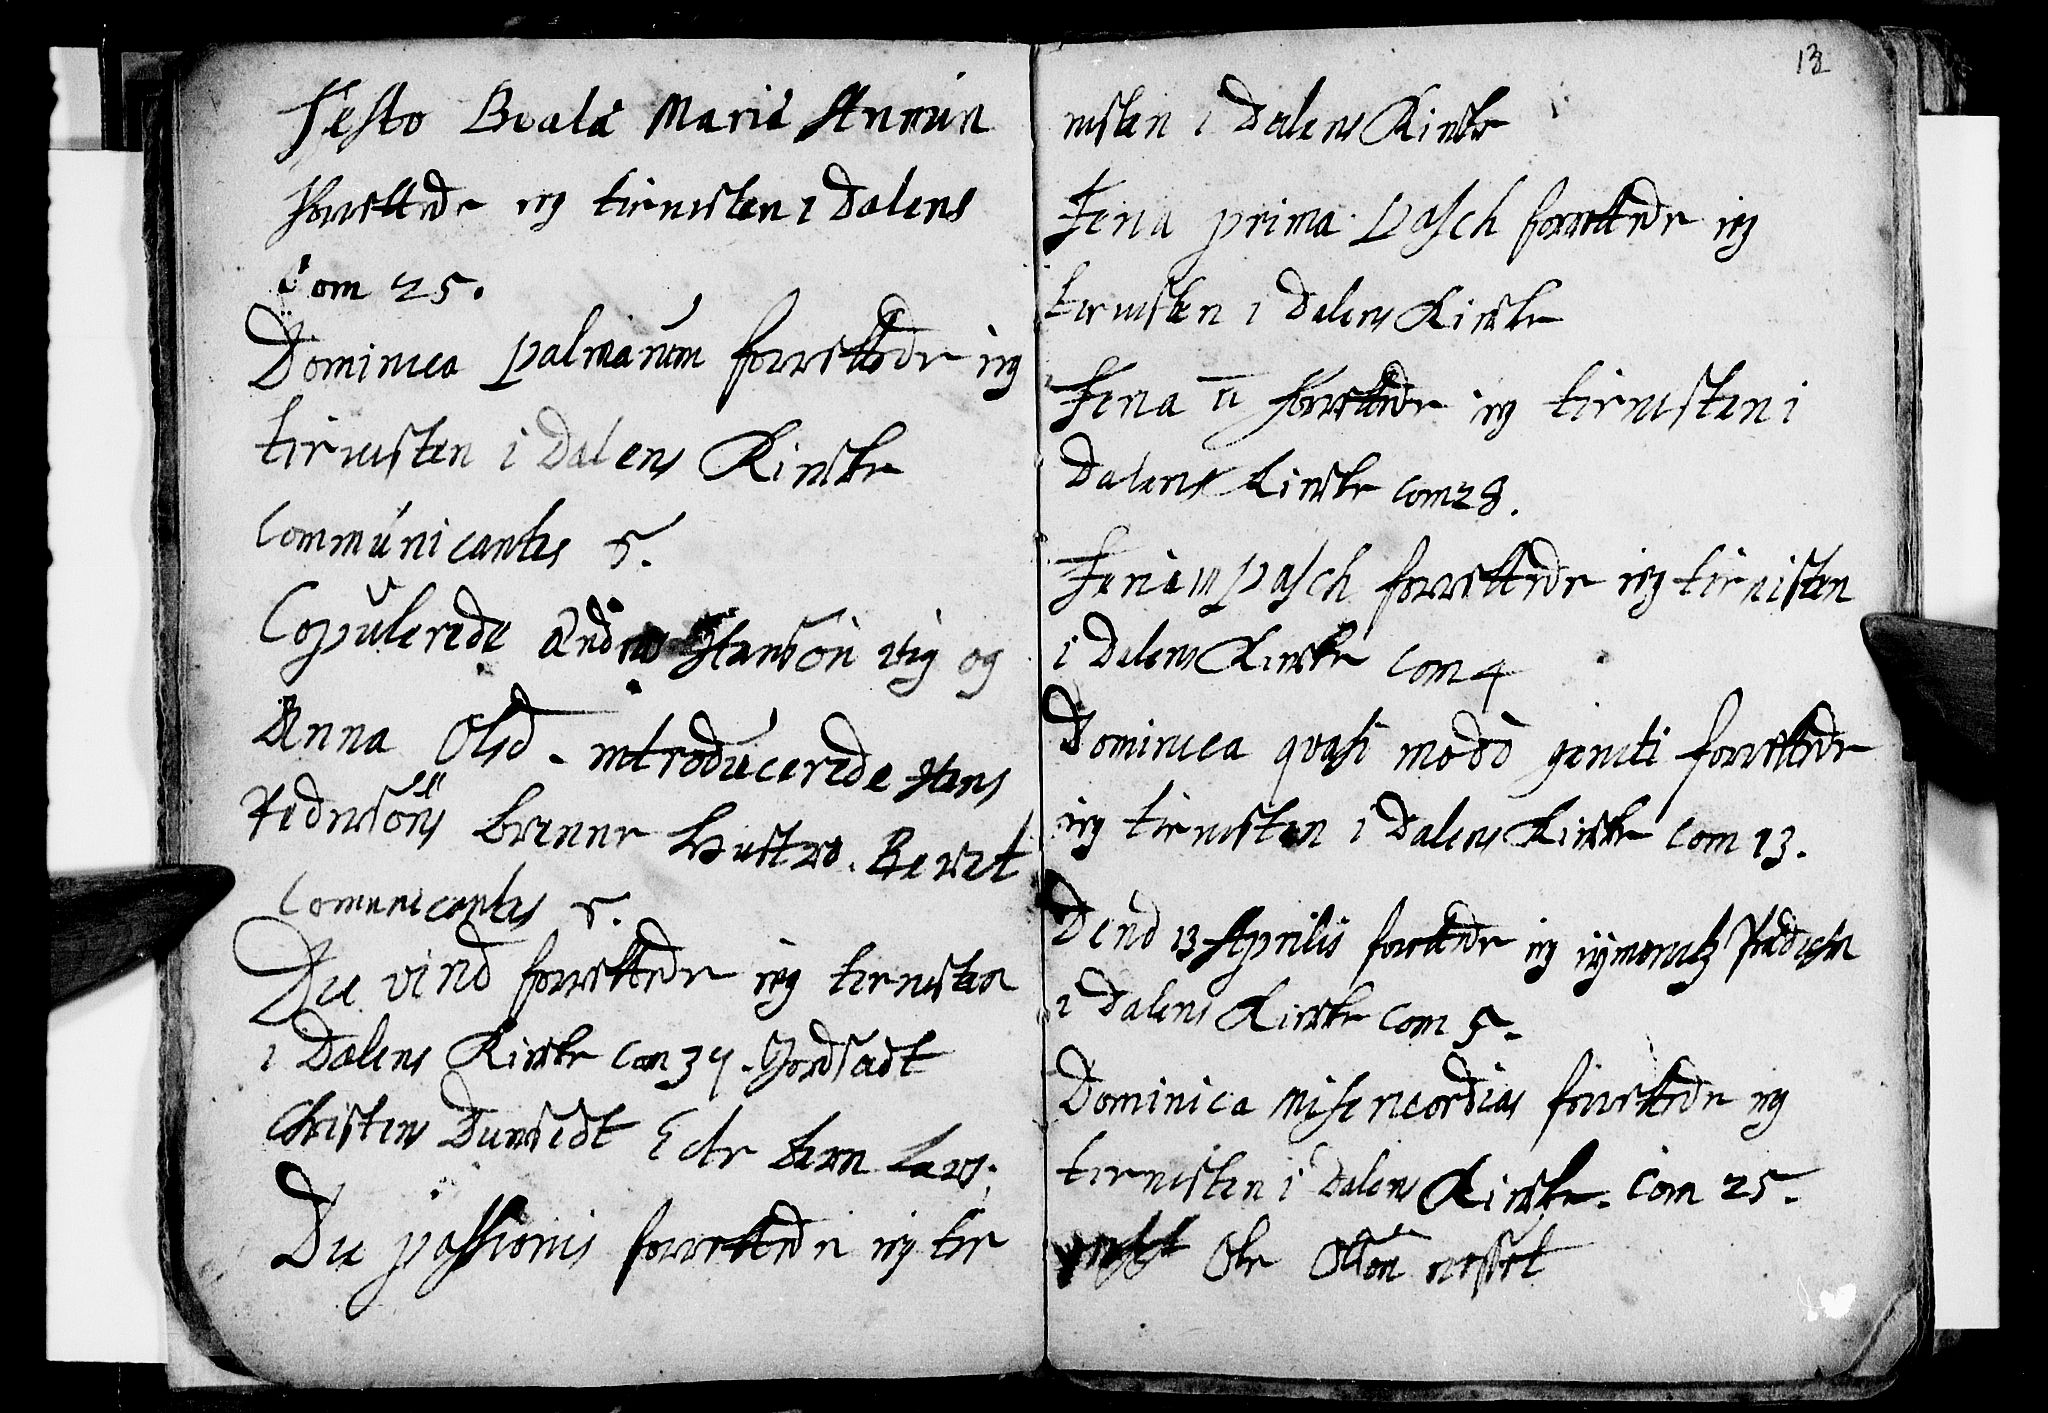 Festo Beatæ Mariæ Annun
forrettede ieg tienisten i Dalens
Com 25.
Dominica palmarum forrettede ieg
tienisten i Dalens Kircke
Communicantes 5.
Copulerede Andreas Hansøn Vig og
Anna Olsd. introducerede Hans
Pedersøns brenne Hustro. Beret
Comunicantes 5.
Die vird forrettede ieg tienisten
i Dalens Kircke Com 34. Jordsadt
Christens Dunsedt Ecte barn Lars.
Die passionis forrettede ieg tie
13
nisten i Dalens Kircke
Feria prima Pasch forrettede ieg
tienisten i Dalens Kircke
Feria II forrettede ieg tienisten i
Dalens Kircke Com 28.
Feria III Pasch forrettede ieg tienisten
i Dalens Kircke Com 4
Dominica qvasi modo geniti forrettede
ieg tienisten i Dalens Kircke Com 13.
Dend 13 Aprilis forrettede ieg Predicken
i Dalens Kircke Com 5.
Dominica Misericordias forrettede ieg
tienisten i Dalens Kircke. Com 25.
Ole Olsøn nesset